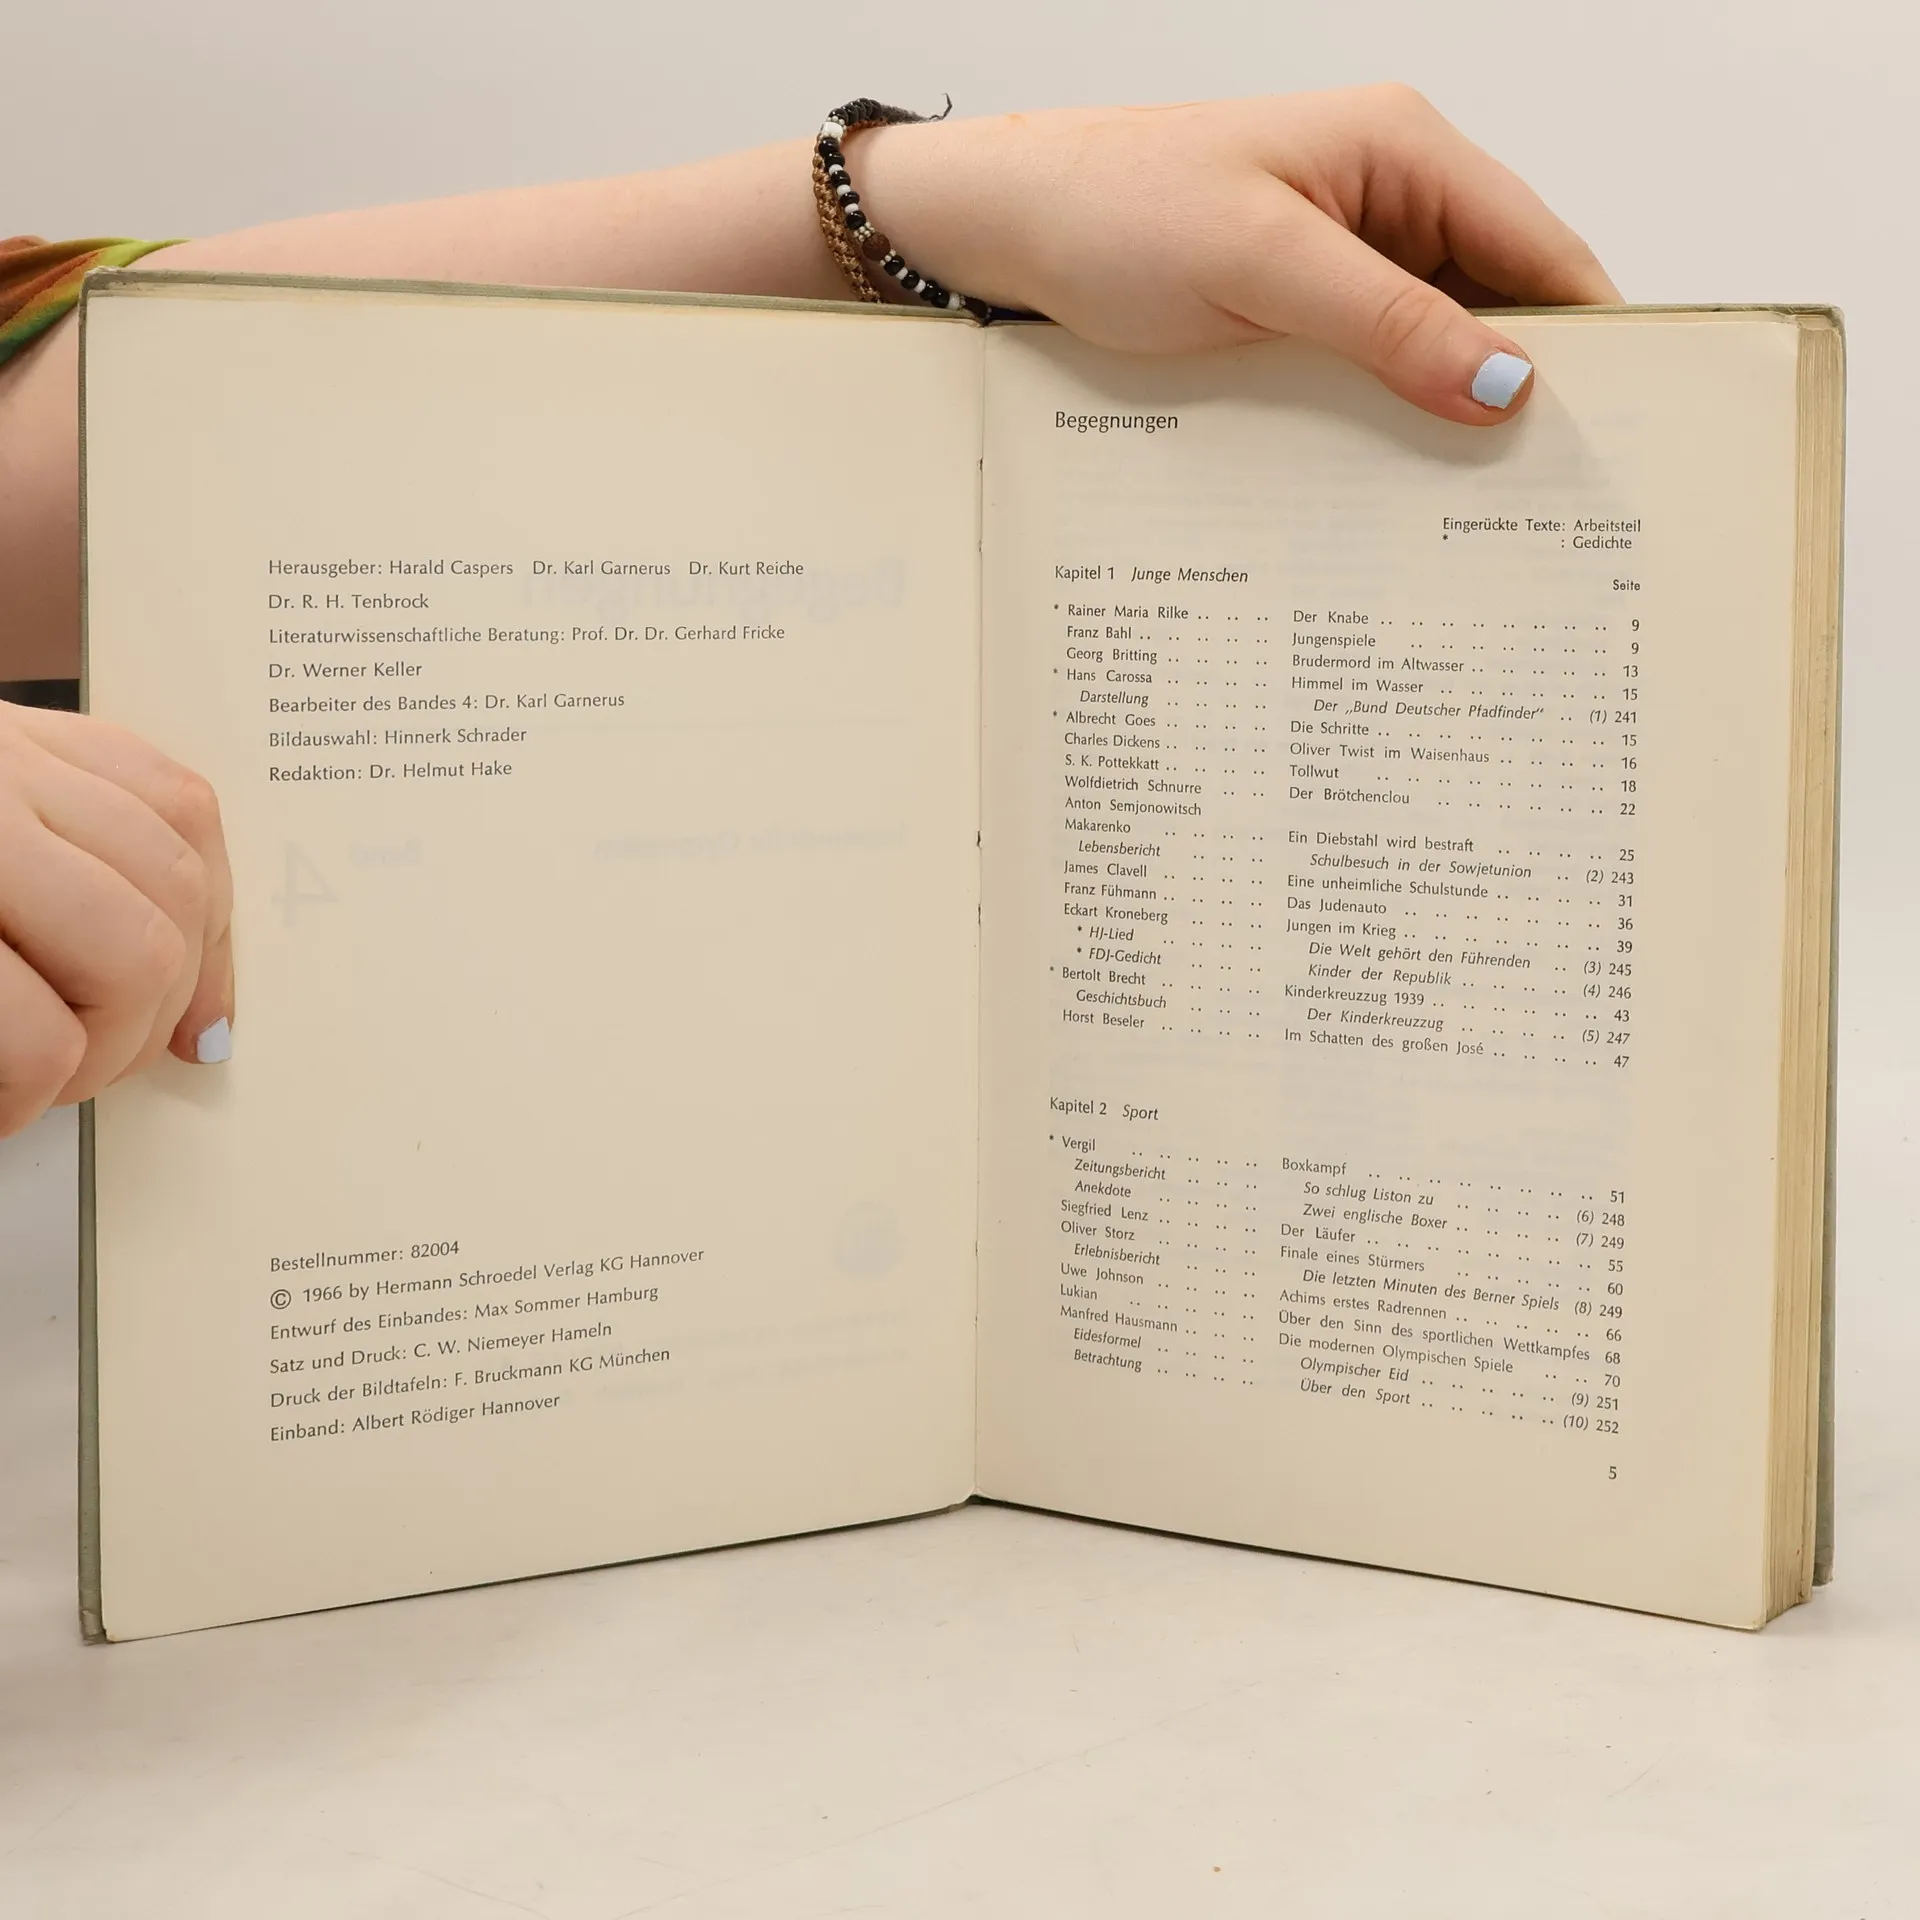 Herausgeber: Harald Caspers Dr. Karl Garnerus Dr. Kurt Reiche
Dr. R. H. Tenbrock
Literaturwissenschaftliche Beratung: Prof. Dr. Dr. Gerhard Fricke
Dr. Werner Keller
Bearbeiter des Bandes 4: Dr. Karl Garnerus
Bildauswahl: Hinnerk Schrader
Redaktion: Dr. Helmut Hake
Bestellnummer: 82004
© 1966 by Hermann Schroedel Verlag KG Hannover
Entwurf des Einbandes: Max Sommer Hamburg
Satz und Druck: C. W. Niemeyer Hameln
Druck der Bildtafeln: F. Bruckmann KG München
Einband: Albert Rödiger Hannover
Begegnungen
Eingerückte Texte: Arbeitsteil
* : Gedichte
Kapitel 1 Junge Menschen
Seite
* Rainer Maria Rilke .. .. .. Der Knabe .. .. .. .. .. .. .. .. 9
Franz Bahl .. .. .. .. .. Jungenspiele .. .. .. .. .. .. .. 9
Georg Britting .. .. .. .. Brudermord im Altwasser .. .. .. .. .. 13
* Hans Carossa .. .. .. .. Himmel im Wasser .. .. .. .. .. .. 15
Darstellung .. .. .. .. Der „Bund Deutscher Pfadfinder“ .. (1) 241
* Albrecht Goes .. .. .. .. Die Schritte .. .. .. .. .. .. .. .. 15
Charles Dickens .. .. .. .. Oliver Twist im Waisenhaus .. .. .. .. 16
S. K. Pottekkatt .. .. .. .. Tollwut .. .. .. .. .. .. .. .. 18
Wolfdietrich Schnurre .. .. Der Brötchenclou .. .. .. .. .. .. 22
Anton Semjonowitsch
Makarenko .. .. .. .. Ein Diebstahl wird bestraft .. .. .. .. 25
Lebensbericht .. .. .. Schulbesuch in der Sowjetunion .. (2) 243
James Clavell .. .. .. .. Eine unheimliche Schulstunde .. .. .. .. 31
Franz Fühmann .. .. .. .. Das Judenauto .. .. .. .. .. .. .. 36
Eckart Kroneberg .. .. .. Jungen im Krieg .. .. .. .. .. .. .. 39
* HJ-Lied .. .. .. .. Die Welt gehört den Führenden .. (3) 245
* FDJ-Gedicht .. .. .. Kinder der Republik .. .. .. .. (4) 246
* Bertolt Brecht .. .. .. .. Kinderkreuzzug 1939 .. .. .. .. .. .. 43
Geschichtsbuch .. .. .. Der Kinderkreuzzug .. .. .. .. (5) 247
Horst Beseler .. .. .. .. Im Schatten des großen José .. .. .. .. 47
Kapitel 2 Sport
* Vergil .. .. .. .. .. Boxkampf .. .. .. .. .. .. .. .. 51
Zeitungsbericht .. .. .. So schlug Liston zu .. .. .. .. (6) 248
Anekdote .. .. .. .. Zwei englische Boxer .. .. .. .. (7) 249
Siegfried Lenz .. .. .. .. Der Läufer .. .. .. .. .. .. .. .. 55
Oliver Storz .. .. .. .. Finale eines Stürmers .. .. .. .. .. 60
Erlebnisbericht .. .. .. Die letzten Minuten des Berner Spiels (8) 249
Uwe Johnson .. .. .. .. Achims erstes Radrennen .. .. .. .. .. 66
Lukian .. .. .. .. .. Über den Sinn des sportlichen Wettkampfes 68
Manfred Hausmann .. .. .. Die modernen Olympischen Spiele .. .. 70
Eidesformel .. .. .. .. Olympischer Eid .. .. .. .. .. (9) 251
Betrachtung .. .. .. .. Über den Sport .. .. .. .. .. (10) 252
5